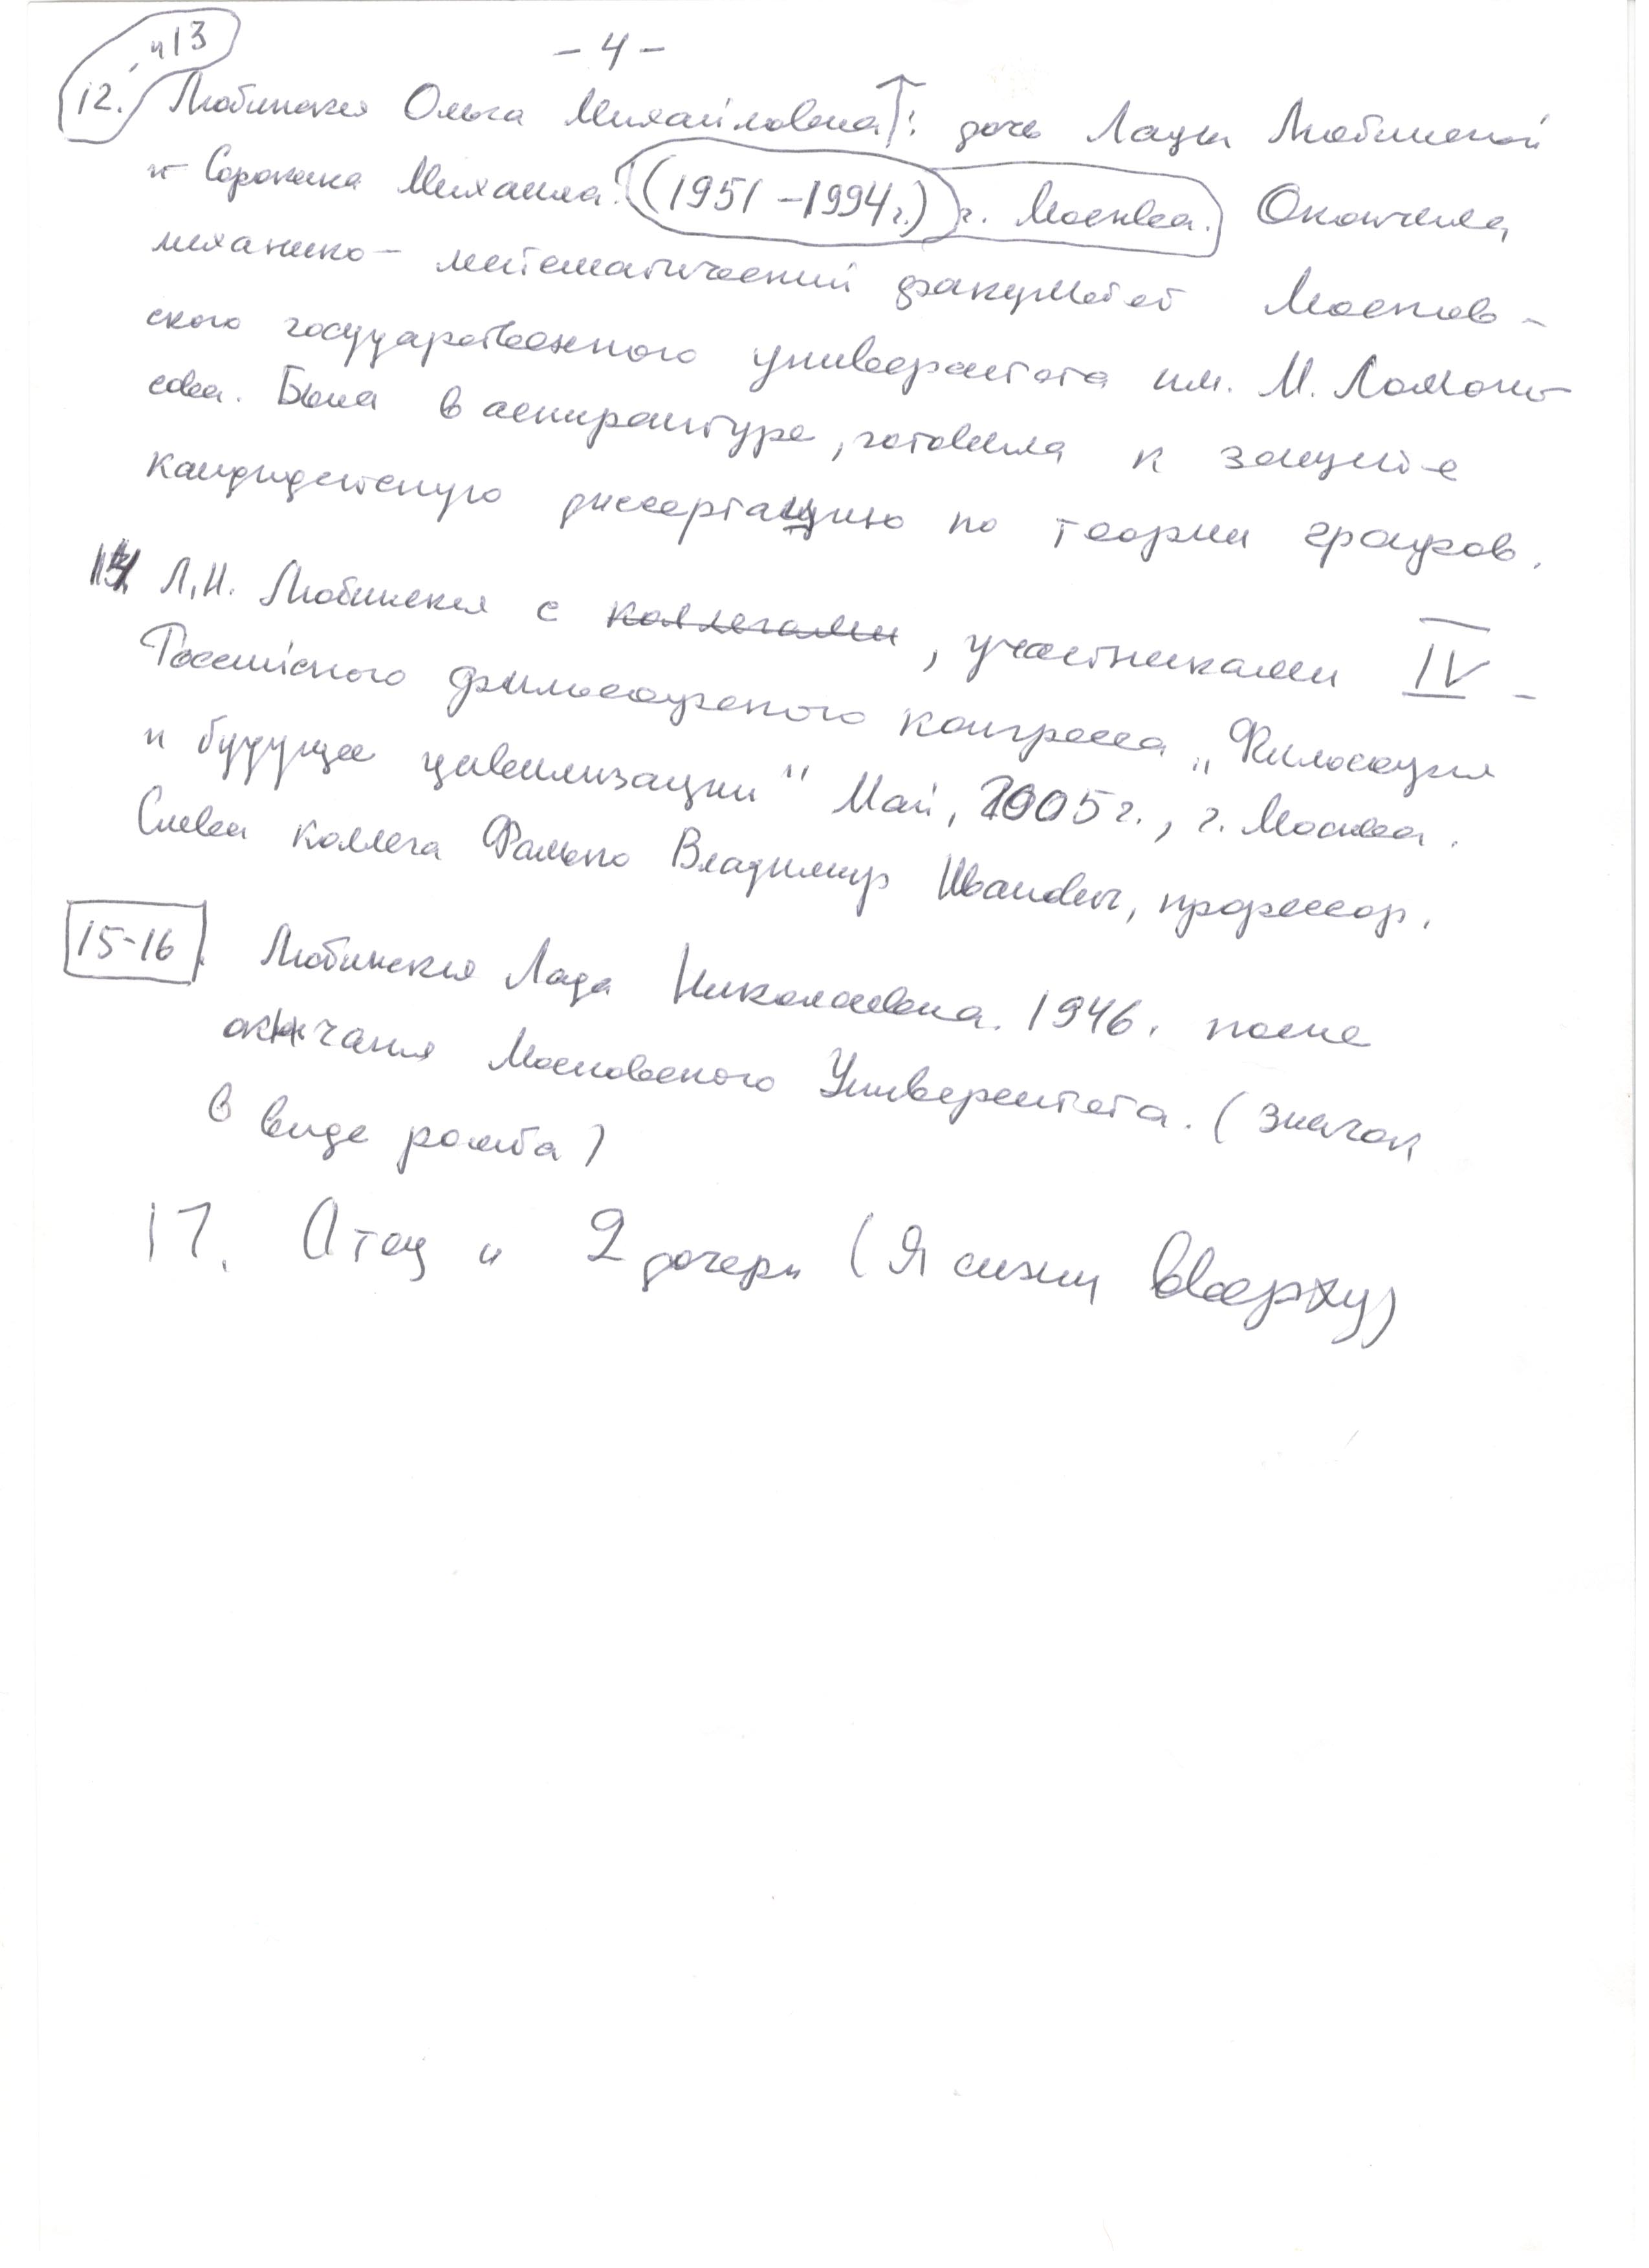 - 4 -
12. и 13
Любинская Ольга Михайловна: дочь Лады Любинской
и Сорокина Михаила. (1951-1994г.) г. Москва. Окончила
механико-математический факультет Москов-
ского государственного университета им. М. Ломоно-
сова. Была в аспирантуре, готовила к защите
кандидатскую диссертацию по теории графов.
14 Л.Н. Любинская с коллегами, участниками IV -
Российского философского конгресса „Философия
и будущее цивилизации" Май, 2005г., г. Москва.
Слева коллега Фалько Владимир Иванович, профессор.
15-16. Любинская Лада Николаевна. 1946. после
окнчания Московского Университета. (значок
в виде ромба)
17. Отец и 2 дочери (Я сижу вверху)